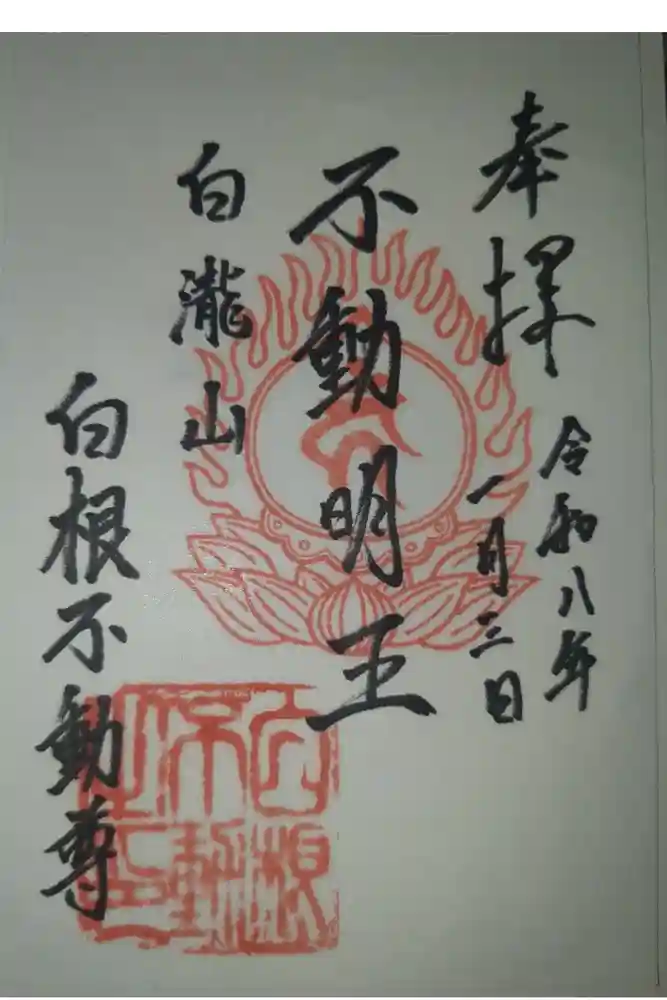 奉拝
令和八年
一月三日
不動明王
白瀧山
白根不動尊
白根
不動
之印